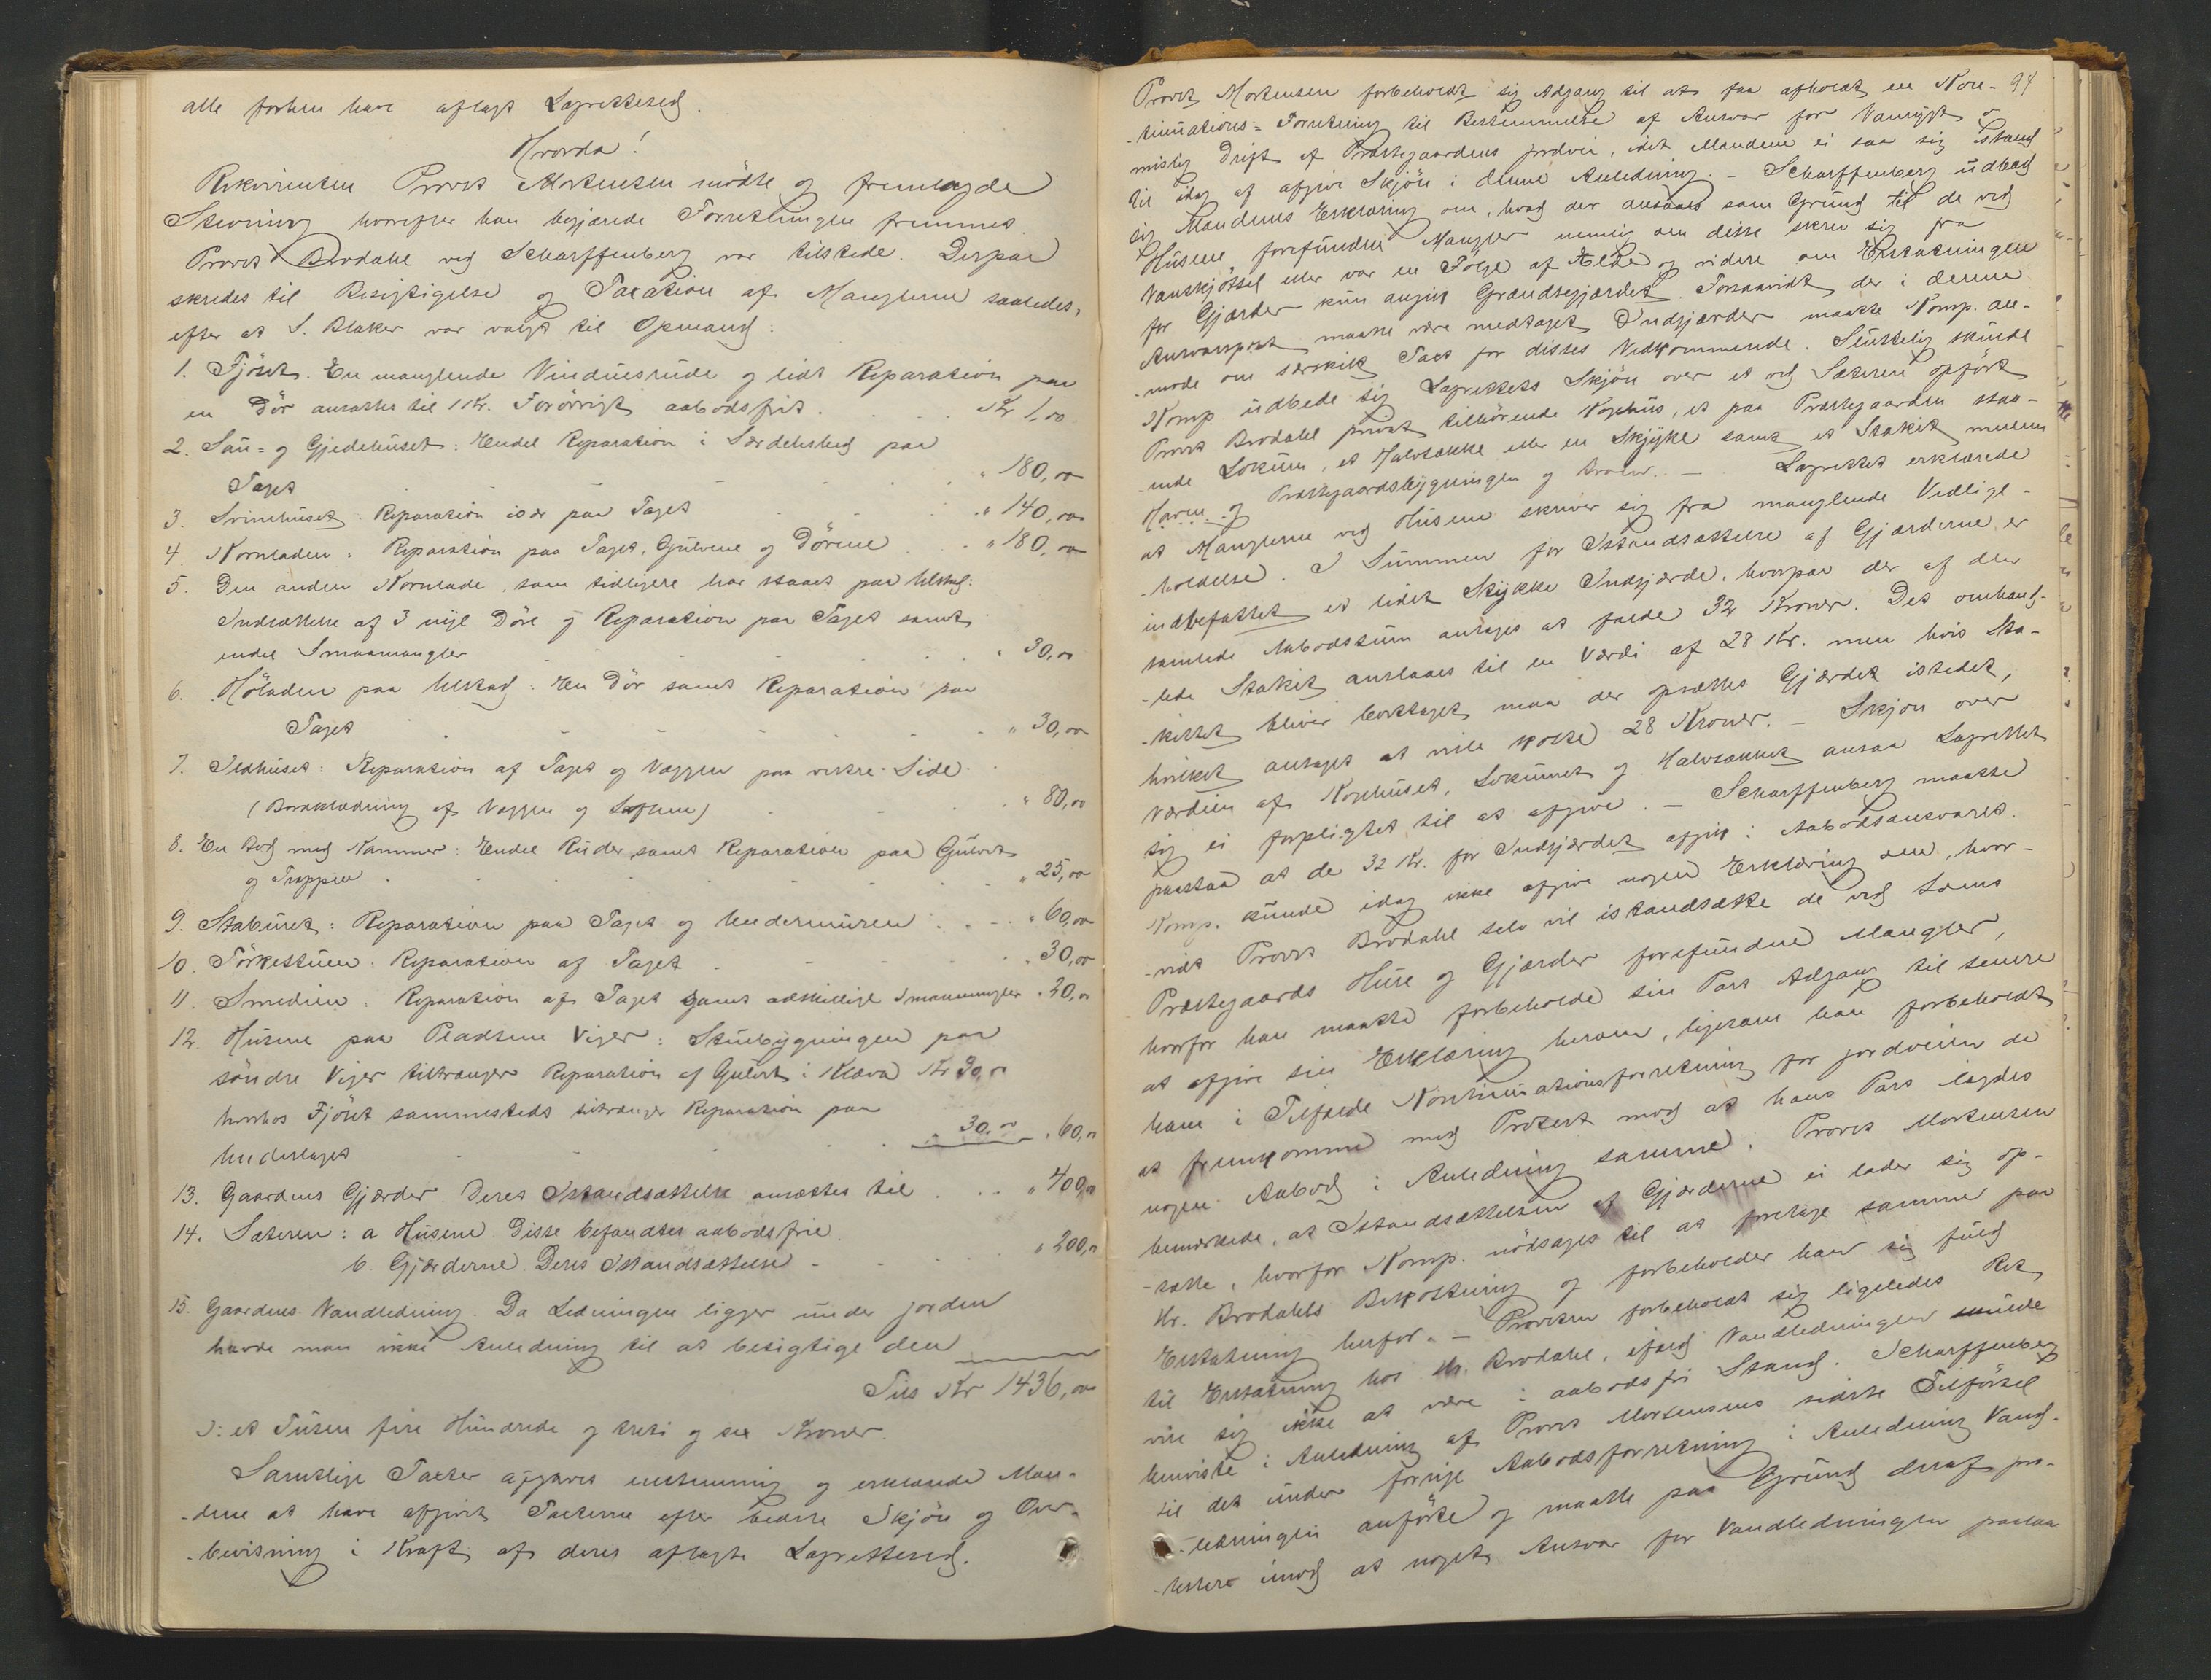 alle forhen have aflagt Lagrettesed.
Hvorda!
Rekvirenten Provst Mortensen mödte og fremlagde
Stevning hvorefter han begjærede Forretningen fremmet.
Provst Brodahl ved Scharffenberg var tilstede. Derpaa
skredes til Besigtigelse og Taxation af Manglerne saaledes,
efter at S. Blaker var valgt til Opmand:
1. Fjöset. En manglende Vinduesrude og lidt Reparation paa
en Dör ansattes til 1 Kr. Forövrigt aabodsfrit . . . Kr 1,00
2. Sau- og Gjedehuset: Endel Reparation i Særdeleshed paa
Taget . . . " 180,00
3. Svinehuset. Reparation især paa Taget . . . " 140,00
4. Kornladen: Reparation paa Taget, Gulvene og Dörene . . " 180,00
5. Den anden Kornlade, som tidligere har staaet paa Ulstad:
Indsættelse af 3 nye Döre og Reparation paa Taget samt
endel Smaamangler . . . " 30,00
6. Höladen paa Ulstad: En Dör samt Reparation paa
Taget . . . " 30,00
7. Ildhuset: Reparation af Taget og Væggen paa vestre Side
(Bordklædning af Væggen og ) . . . " 80,00
8. En Bod med Kammer: Endel Ruder samt Reparation paa Gulvet
og Trappen . . . " 25,00
9. Staburet: Reparation paa Taget og Undermuren . . . " 60,00
10. Törkestuen: Reparation af Taget . . . " 30,00
11. Smedien: Reparation af Taget samt adskillige Smaamangler " 20,00
12. Husene paa Pladsene Viger: Stuebygningen paa
söndre Viger tiltrænger Reparation af Gulvet i Kleva Kr 30,00
hvorhos Fjöset sammesteds tiltrænger Reparation paa
Underlaget . . . " 30,00 " 60,00
13. Gaardens Gjærder. Deres Istandsættelse ansættes til . . . " 400,00
14. Sæteren: a Husene. Disse befandtes aabodsfrie.
b. Gjærderne. Deres Istandsættelse . . . " 200,00
15. Gaardens Vandledning. Da Ledningen ligger under Jorden
havde man ikke Anledning til at besigtige den
Tils Kr 1436,00
ɔ: et Tusen fire Hundrede og treti og sex Kroner.
Samtlige Taxter afgaves enstemmig og erklærede Mæn-
-dene at have afgivet Taxterne efter bedste Skjön og Over-
-bevisning i Kraft af deres aflagte Lagrettesed.
94
Provst Mortensen forbeholdt sig Adgang til at faa afholdt en Kon-
-tinuations-Forretning til Bestemmelse af Ansvar for Vanrygt o
mislig Drift af Præstegaardens Jordvei, idet Mændene ei saa sig istand
til idag at afgive Skjön i denne Anledning. - Scharffenberg udbad
sig Mændenes Erklæring om, hvad der ansaaes som Grund til de ved
Husene forefundne Mangler nemlig om disse skrev sig fra
Vanskjötsel eller var en Fölge af Ælde og videre om Erstatningen
for Gjærder kun angik Grændsegjærdet. Forsaavidt der i denne
Ansvarspost maatte være medtaget Indgjærder maatte Komp. an-
-mode om særskilt Taxt for disses Vedkommende. Sluttelig skulde
Komp udbede sig Lagrettets Skjön over et ved Sæteren opfört
Provst Brodahl privat tilhörende Kogehus, et paa Præstegaarden staa-
-ende Lokum, et Halvtække eller en Skjykke samt et Stakit mellem
Haven og Præstegaardsbygningen og . - Lagrettet erklærede
at Manglerne ved Husene skriver sig fra manglende Vedlige-
-holdelse. I Summen for Istandsættelse af Gjærderne er
indbefattet et lidet Stykke Indgjærde, hvorpaa der af den
samlede Aabodssum antages at falde 32 Kroner. Det omhand-
-lede Stakit anslaaes til en Værdi af 28 Kr. men hvis Sta-
-kittet bliver borttaget maa der opsættes Gjærdet istedet,
hvilket antages at ville koste 28 Kroner. - Skjön over
Værdien af Kogehuset, Lokumet og Halvtækket ansaa Lagrettet
sig ei forpligtet til at afgive. - Scharffenberg maatte
paastaa at de 32 Kr. for Indgjærdet afgik i Aabodsansvaret.
Komp. kunde idag ikke afgive nogen Erklæring om, hvor-
-vidt Provst Brodahl selv vil istandsætte de ved Loms
Præstegaards Huse og Gjærder forefundne Mangler,
hvorfor han maatte forbeholde sin Part Adgang til senere
at afgive sin Erklæring herom, ligesom han forbeholdt
ham i Tilfælde Kontinuationsforretning for Jordveien de
at fremkomme med Protest mod at hans Part ilagdes
nogen Aabod i Anledning samme. Provst Mortensen
bemærkede, at Istandsættelsen af Gjærderne ei lader sig op-
-sætte, hvorfor Komp. nödsages til at foretage samme paa
Hr. Brodahls Bekostning og forbeholder han sig fuld
Erstatning herfor. - Provsten forbeholdt sig ligeledes Ret
til Erstatning hos Hr. Brodahl, ifald Vandledningen skulde
vise sig ikke at være i aabodsfri Stand. Scharffenberg
henviste i Anledning af Provst Mortensens sidste Tilförsel
til det under forrige Aabodsforretning i Anledning Vand-
-ledningen anförte og maatte paa Grund deraf pro-
-testere imod at noget Ansvar for Vandledningen paalaa